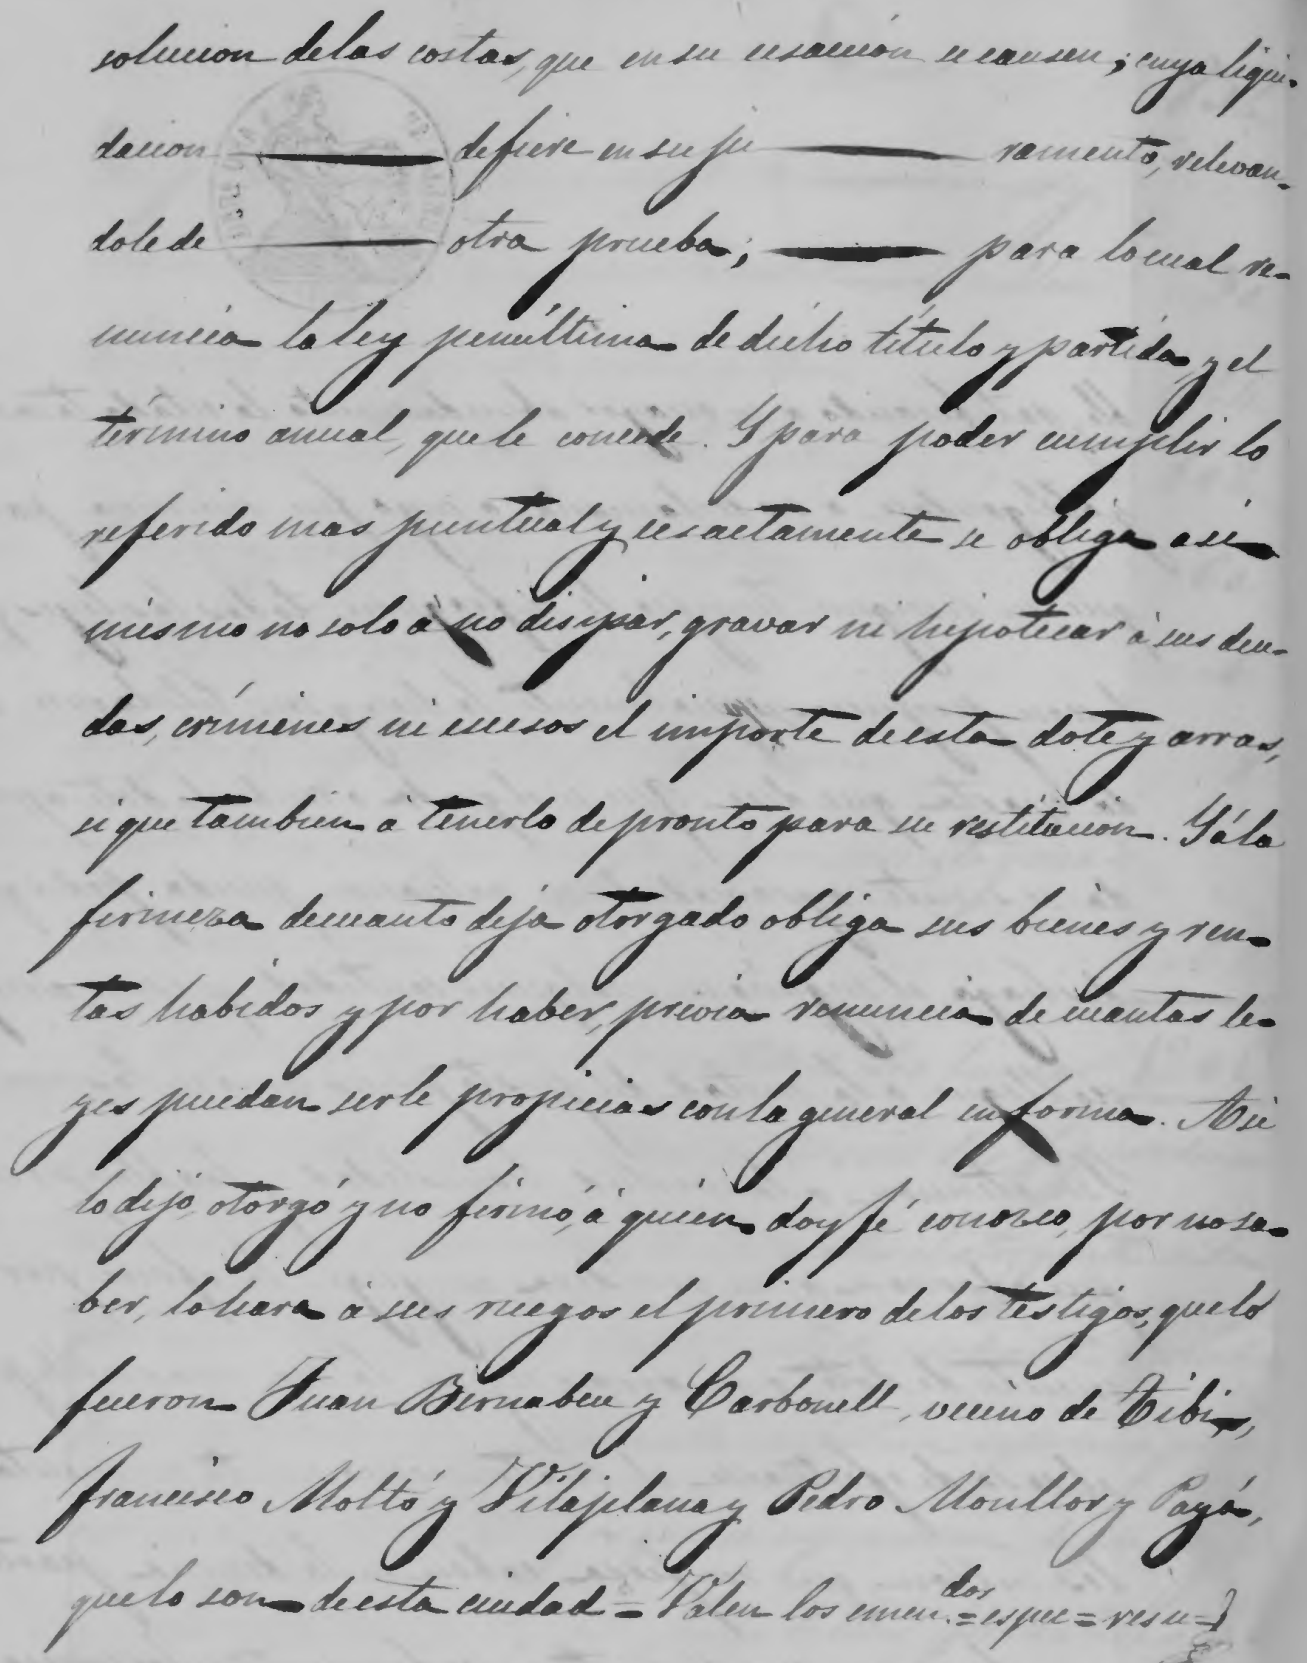 solucion delas costas, que en su esaccion se causen; cuya liqui-
dacion defiere en su ju ramento, relevan-
dole de otra prueba; para lo cual re-
nuncia la ley penúltima de dicho título y partida, y el
término anual, que le concede. Y para poder cumplir lo
referido mas puntual y esactamente se obliga asi
mismo no solo à no disipar, gravar ni hipotecar à sus deu-
das, crímenes ni escesos el importe de esta dote y arras,
si que tambien à tenerlo de pronto para su restitucion. Y á la
firmeza de cuanto deja otorgado obliga sus bienes y ren-
tas habidos y por haber, previa renuncia de cuantas le-
yes puedan serle propicias con la general en forma. Asi
lo dijó, otorgó y no firmó, à quien doy fé conozco, por no sa-
ber, lo hara à sus ruegos el primero de los testigos, que lo
fueron Juan Bernabeu y Carbonell, vecino de Tibi,
Francisco Moltó y Vilaplana y Pedro Moullor y Payá,
que lo son de esta ciudad = Valen los enmen.dos = espec = resu =